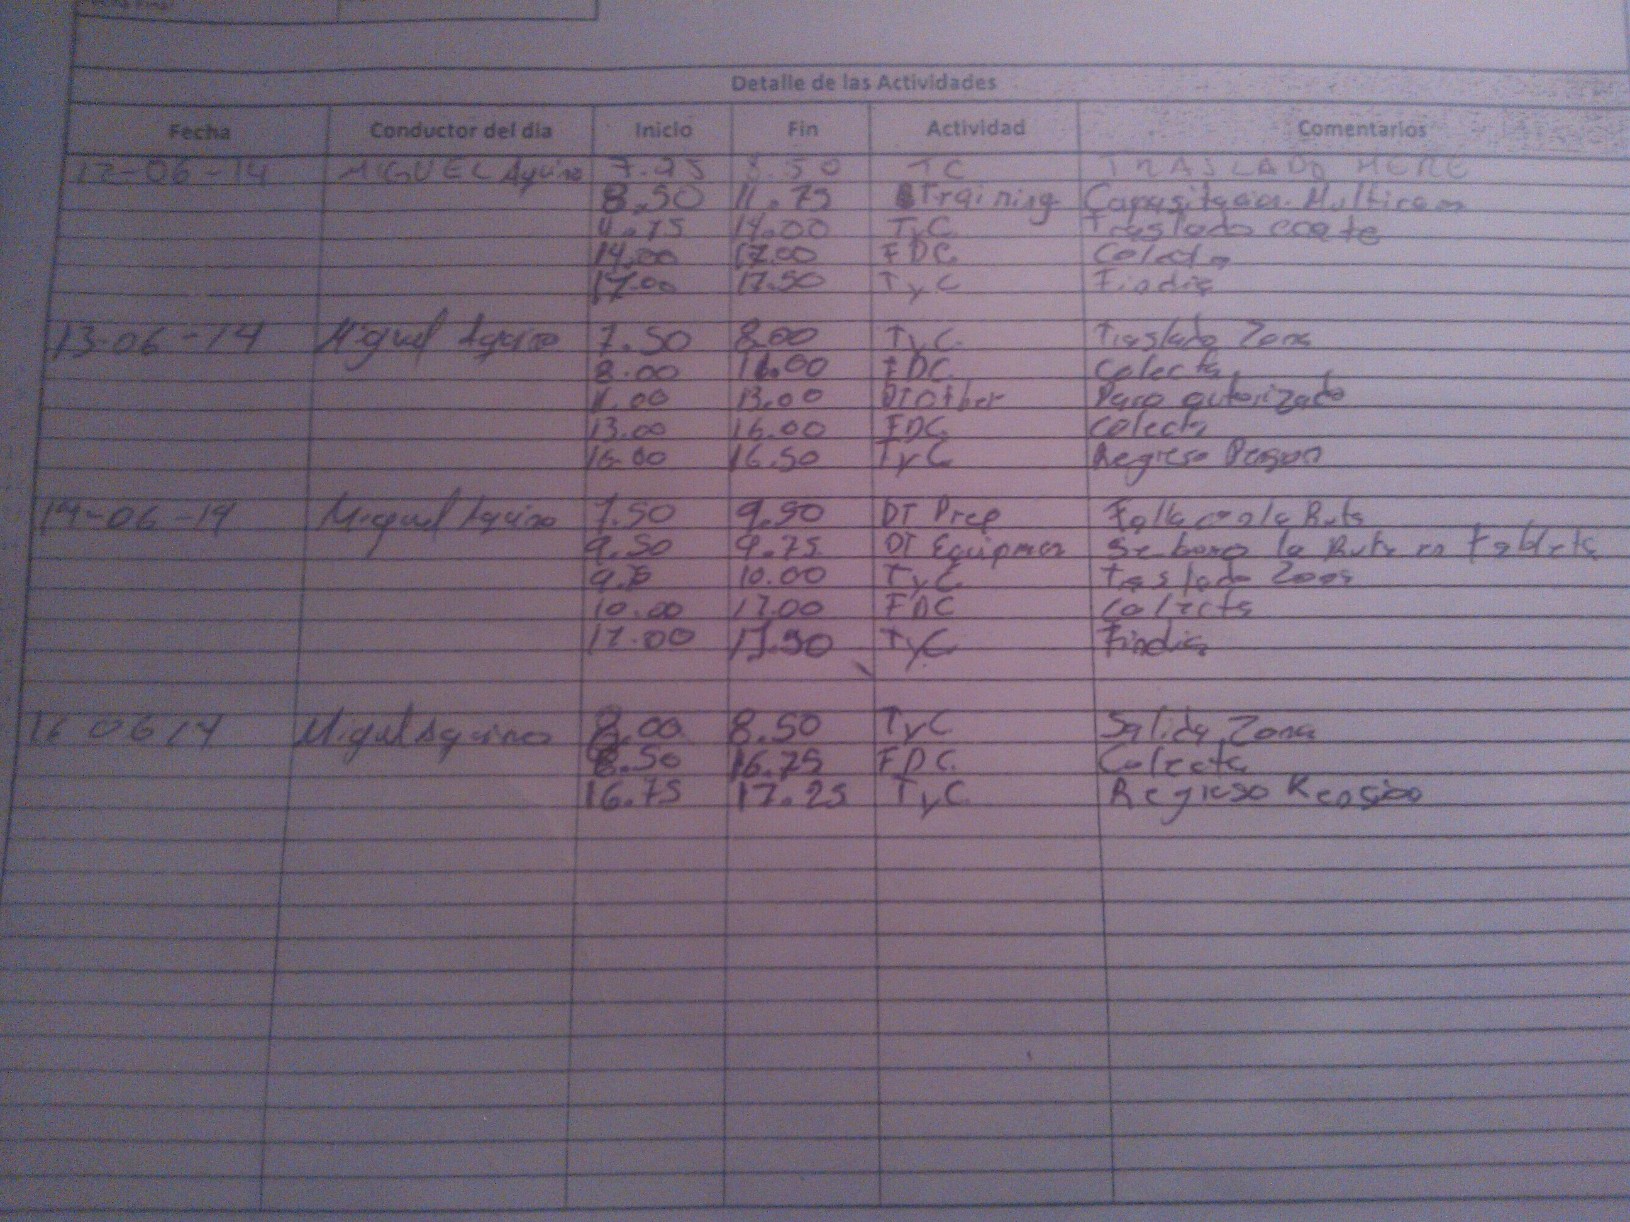 Detalle de las Actividades
Fecha Conductor del dia Inicio Fin Actividad Comentarios
12-06-14 MIGUEL Aquino 7.25 8.50 TC TRASLADO HERE
8.50 11.75 Training Capasitacion Multicam
11.75 14.00 TyC Traslado
14.00 17.00 FDC Colecta
17.00 17.50 TyC Findia
13-06-14 Miguel Aquino 7.50 8.00 TyC Traslado Zona
8.00 11.00 FDC Colecta
11.00 13.00 DTother Paro autorizado
13.00 16.00 FDC Colecta
16.00 16.50 TyC Regreso
14-06-14 Miguel Aquino 7.50 9.50 DT Prep Falla con la Ruta
9.50 9.75 DT Equipmen Se borro la Ruta en tableta
10.00 TyC Traslado Zona
10.00 17.00 FDC Colecta
17.00 17.50 TyC Findia
16 06 14 Miguel Aquino 8.00 8.50 TyC Salida Zona
8.50 16.75 FDC Colecta
16.75 17.25 TyC Regreso